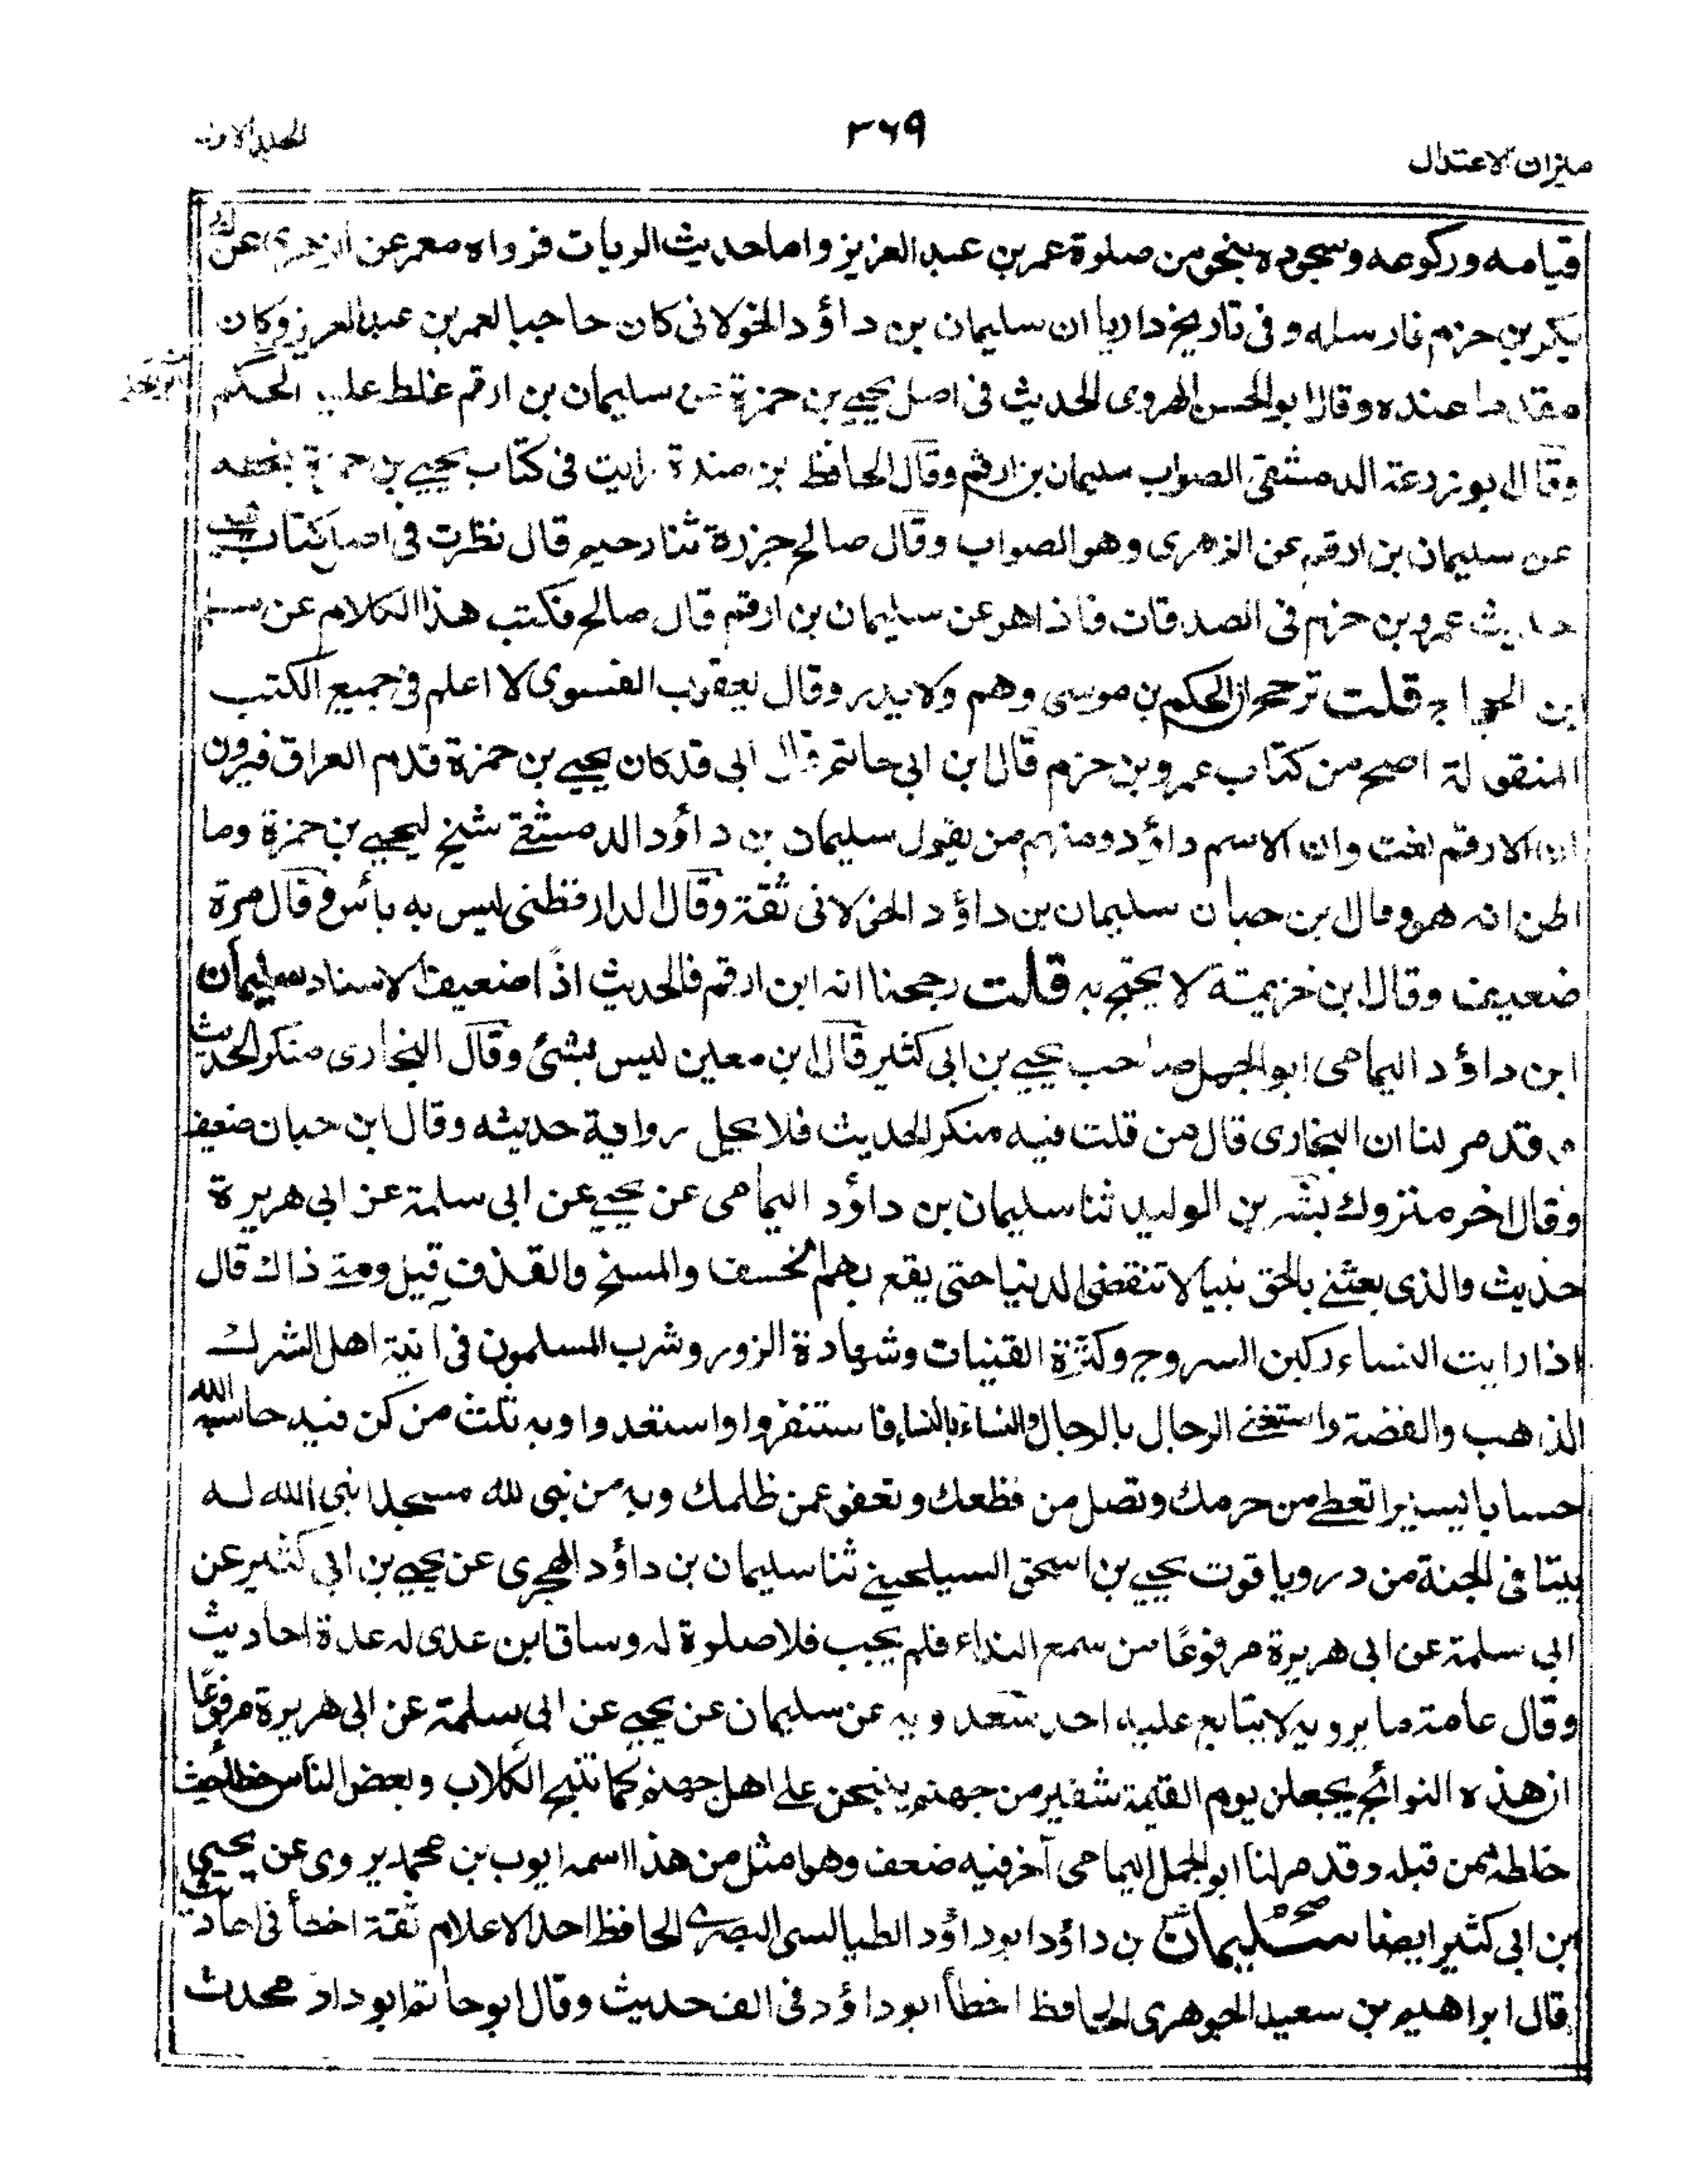 ميزان الاعتدال
٣٦٩
قيامه وركوعه وسجوده بنحو من صلوة عمر بن عبد العزيز واما حديث الديات فرواه معمر عن الزهرى عن
بكر بن حزم فارسله وفى تاريخ داريا ان سليمان بن داؤد الخولانى كان حاجبا لعمر بن عبد العزيز وكان
مقدما عنده وقال ابو الحسن الهروى الحديث فى اصل يحيى بن حمزة عن سليمان بن ارقم غلط عليه الحكم
وقال ابو زرعة الدمشقى الصواب سليمان بن ارقم وقال الحافظ بن مندة رايت فى كتاب يحيى بن حمزة بخطه
عن سليمان بن ارقم عن الزهرى وهو الصواب وقال صالح جزرة ثنا دحيم قال نظرت فى اصل كتاب
حديث عمرو بن حزم فى الصدقات فاذا هو عن سليمان بن ارقم قال صالح فكتب هذا الكلام عن
بن الحجاج قلت ترجح ان الحكم بن موسى وهم ولا بد وقال يعقوب الفسوى لا اعلم فى جميع الكتب
المنقولة اصح من كتاب عمرو بن حزم قال ابن ابى حاتم قال ابى قد كان يحيى بن حمزة قدم العراق فيرون
ان الارقم لقب وان الاسم داؤد ومنهم من يقول سليمان بن داؤد الدمشقى شيخ ليحيى بن حمزة وما
اظن انه هو وقال بن حبان سليمان بن داؤد الخولانى ثقة وقال الدارقطنى ليس به بأس وقال مرة
ضعيف وقال ابن خزيمة لا يحتج به قلت رجحنا انه ابن ارقم فالحديث اذًا ضعيف الاسناد سليمان
ابن داؤد اليمامى ابو الجمل صاحب يحيى بن ابى كثير قال ابن معين ليس بشئ وقال البخارى منكر الحديث
وقد مر لنا ان البخارى قال من قلت فيه منكر الحديث فلا يحل رواية حديثه وقال ابن حبان ضعيف
وقال اخر متروك بشر بن الوليد ثنا سليمان بن داؤد اليمامى عن يحيى عن ابى سلمة عن ابى هريرة
حديث والذى بعثنى بالحق نبيا لا تنقضى الدنيا حتى يقع بهم الخسف والمسخ والقذف قيل ومتى ذاك قال
اذا رايت النساء ركبن السروج وكثرة القينات وشهادة الزور وشرب المسلمون فى آنية اهل الشرك
الذهب والفضة واستغنى الرجال بالرجال والنساء بالنساء فاستنفروا واستعدوا وبه ثلث من كن فيه حاسبه الله
حسابا يسيرا تعطى من حرمك وتصل من قطعك وتعفو عمن ظلمك وبه من بنى لله مسجدا بنى الله له
بيتا فى الجنة من در وياقوت يحيى بن اسحق السيلحينى ثنا سليمان بن داؤد الهجرى عن يحيى بن ابى كثير عن
ابى سلمة عن ابى هريرة مرفوعًا من سمع النداء فلم يجب فلا صلوة له وساق ابن عدى له عدة احاديث
وقال عامة ما يرويه لا يتابع عليه احد سعد وبه عن سليمان عن يحيى عن ابى سلمة عن ابى هريرة مرفوعًا
ان هذه النوائح يجعلن يوم القيمة شفير من جهنم ينبحن على اهل جهنم كما تنبح الكلاب وبعض الناس
خلطه بمن قبله وقد مر لنا ابو الجمل اليمامى آخر فيه ضعف وهو امثل من هذا اسمه ايوب بن محمد يروى عن يحيى
بن ابى كثير ايضا سليمان بن داؤد ابو داؤد الطيالسى البصرى الحافظ احد الاعلام ثقة اخطأ فى احاديث
قال ابراهيم بن سعيد الجوهرى الحافظ اخطأ ابو داؤد فى الف حديث وقال ابو حاتم ابو داود محدث